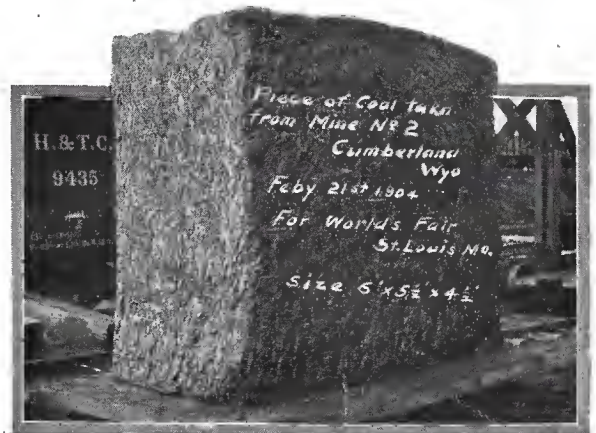 H. & T.C.
9435
Piece of Coal takn
from Mine Nº 2
Cumberland
Wyo
Feby 21st 1904
For World's Fair
St. Louis Mo.
Size 6'x5½'x4½'